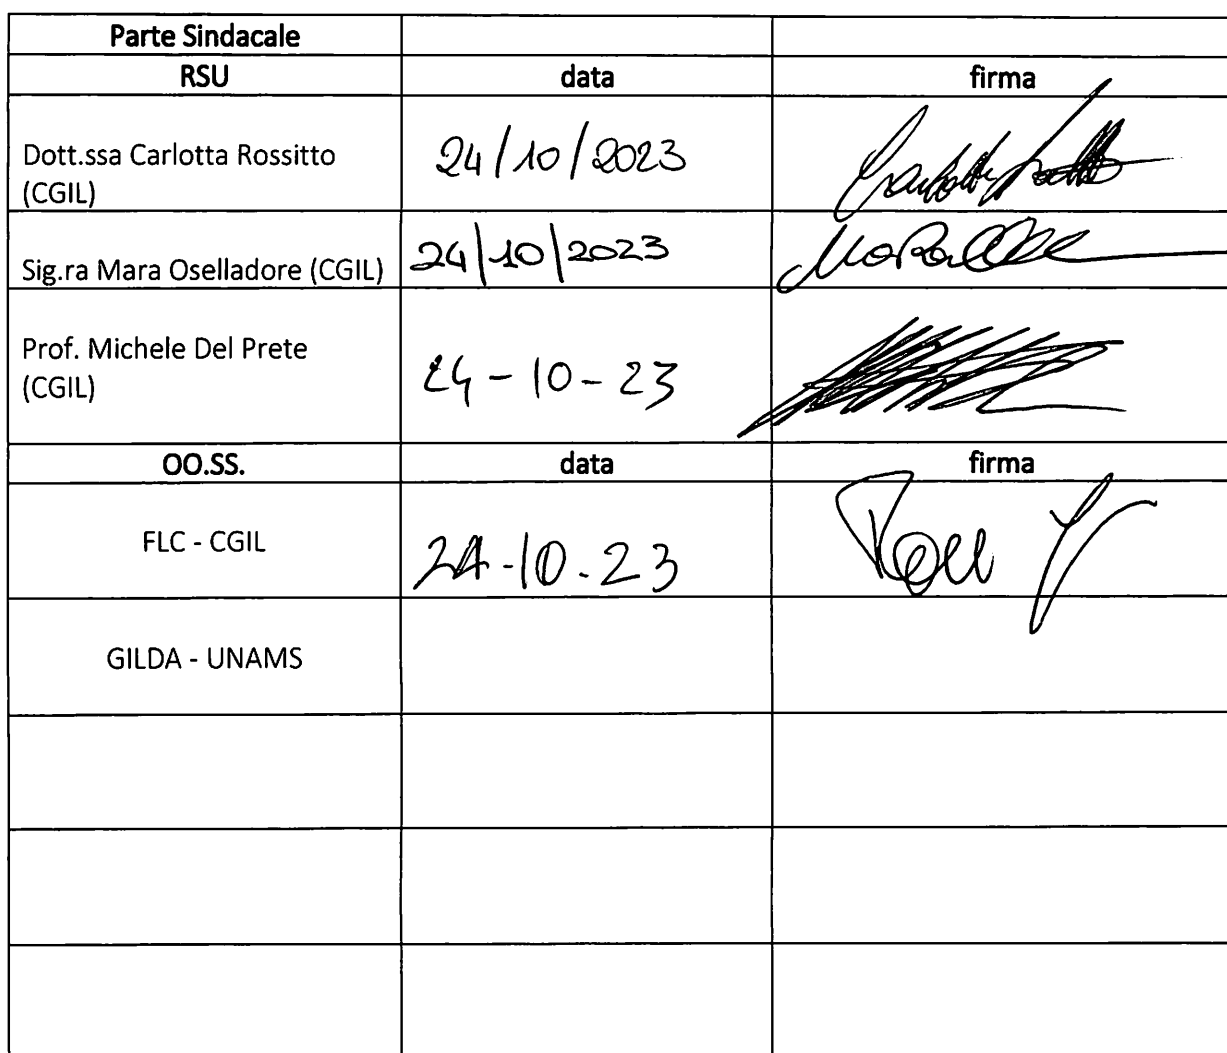 Parte Sindacale
RSU data firma
Dott.ssa Carlotta Rossitto
(CGIL)
24/10/2023
Sig.ra Mara Oselladore (CGIL) 24/10/2023
Prof. Michele Del Prete
(CGIL)
24-10-23
OO.SS. data firma
FLC - CGIL
24-10.23
GILDA - UNAMS